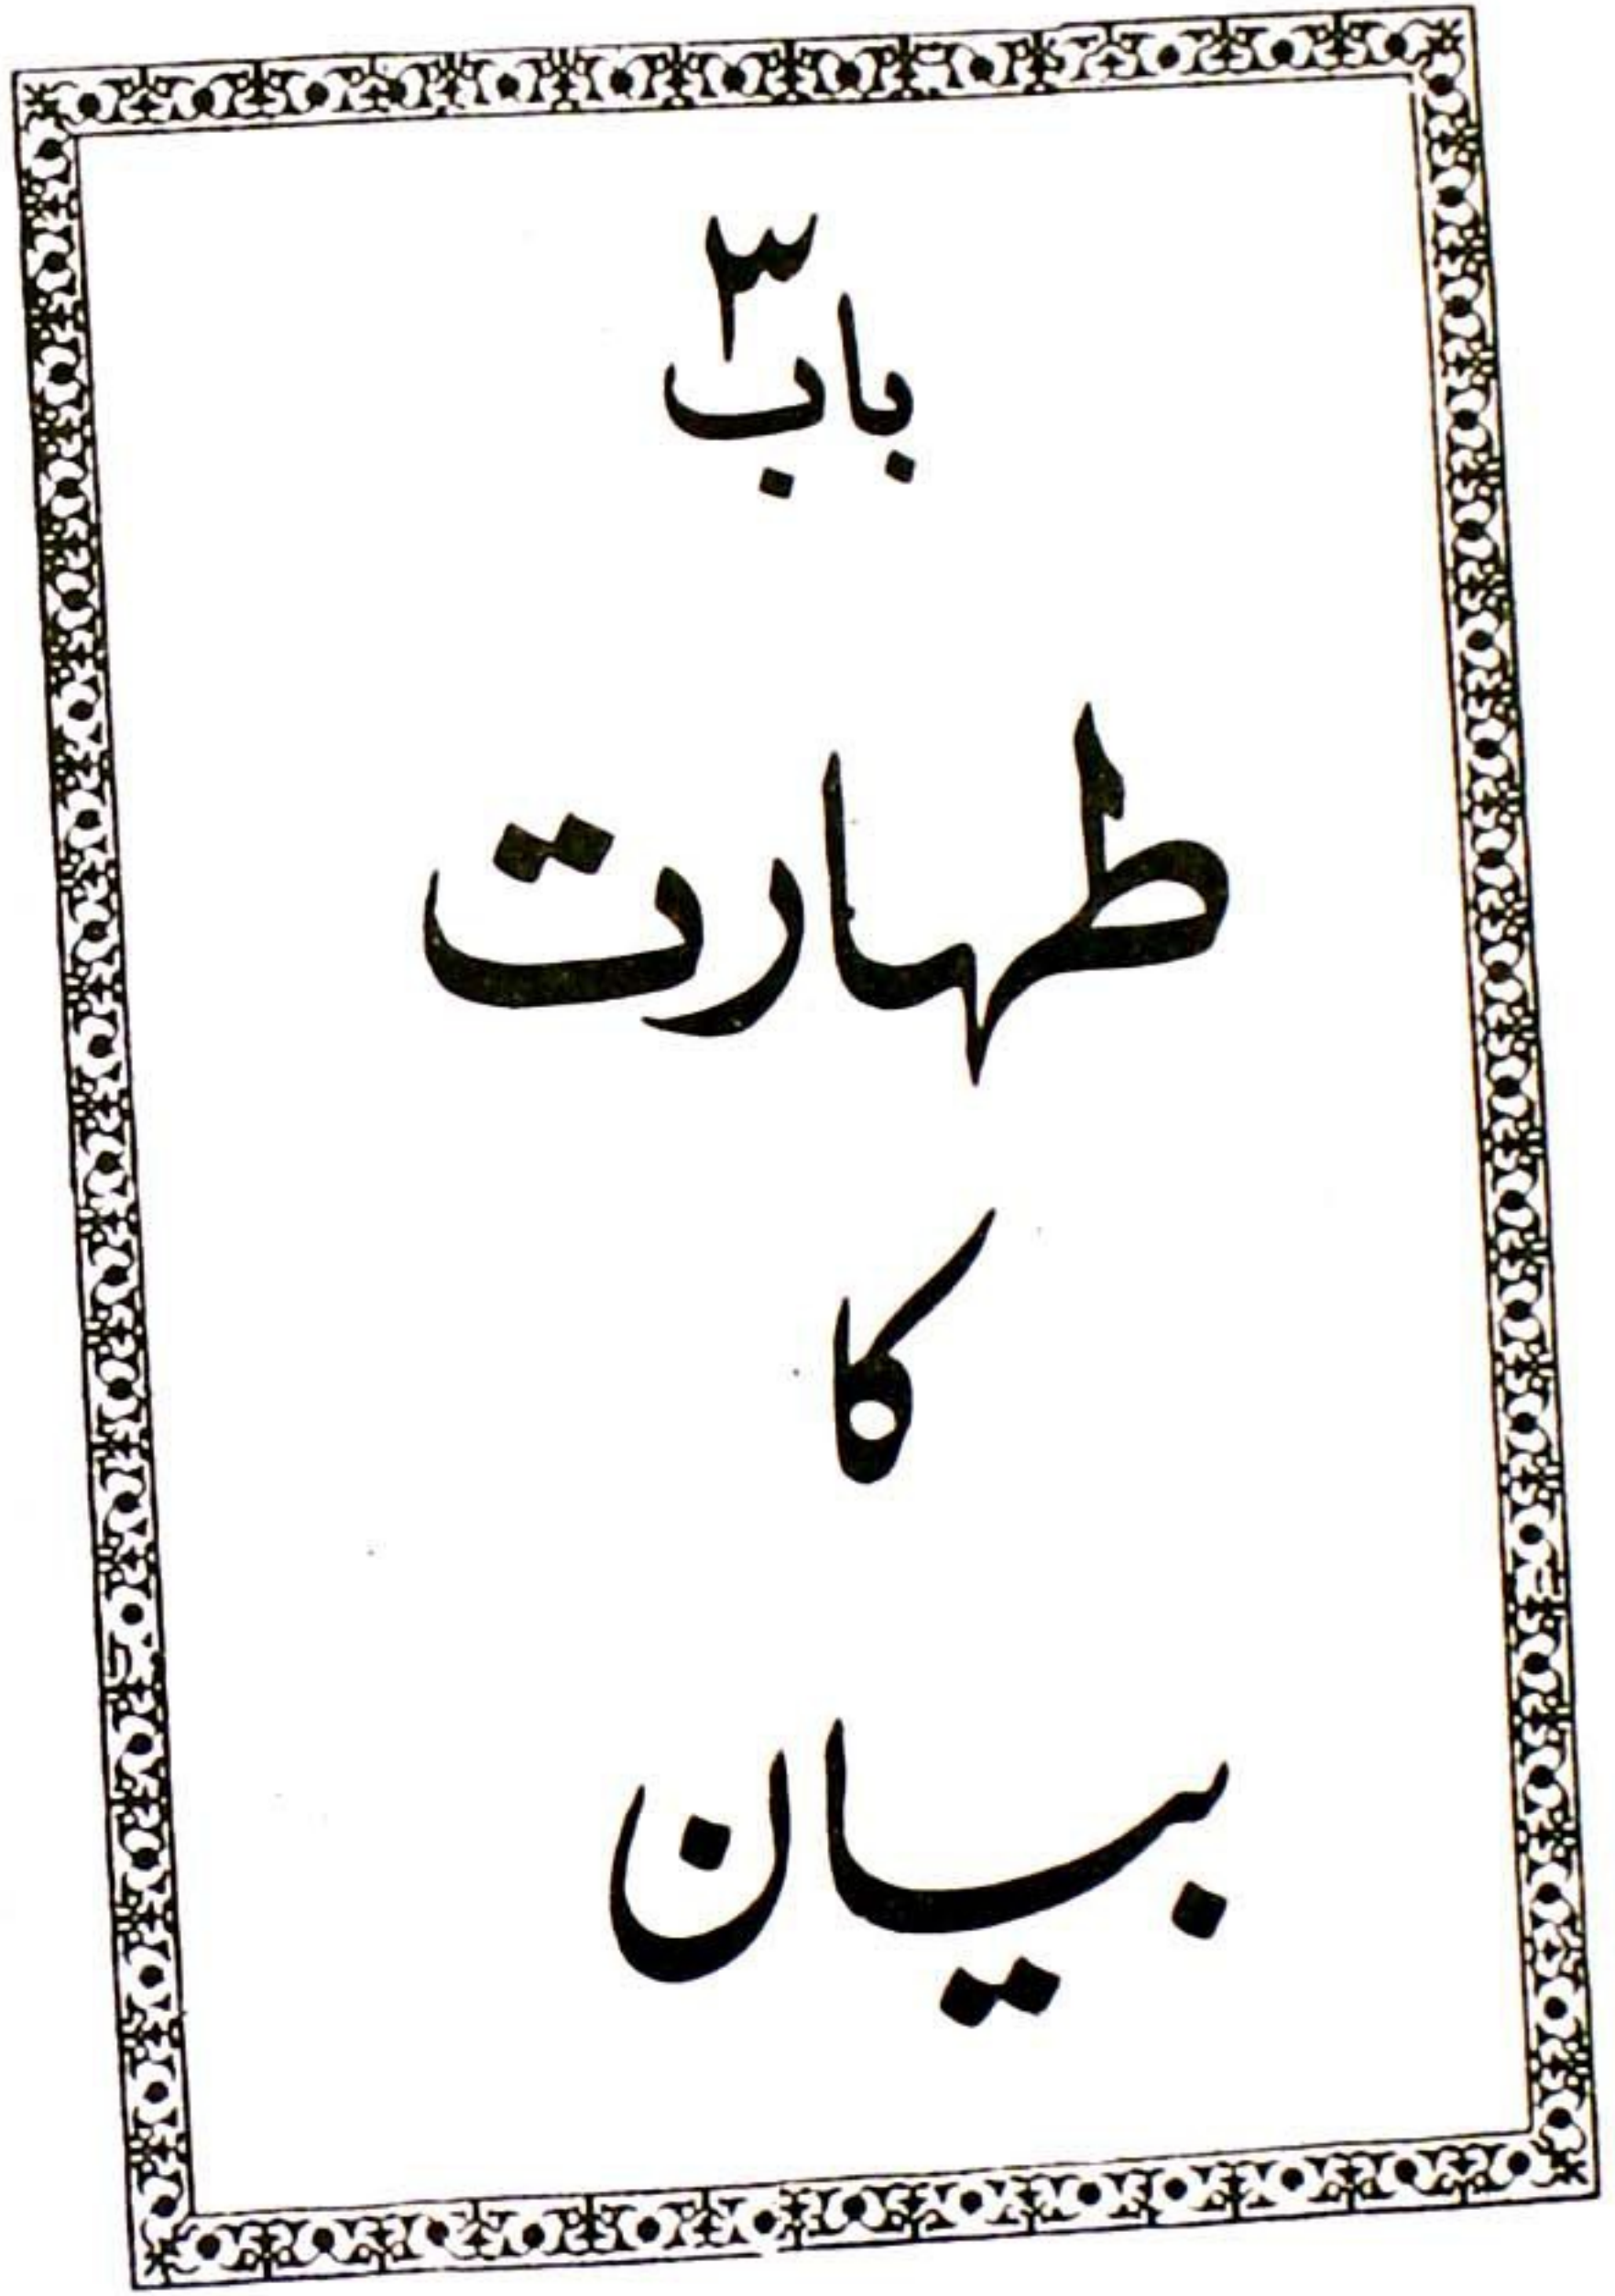 باب ۳
طہارت
کا
بیان